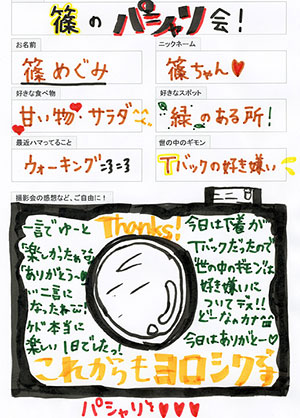 篠のパシャリ会!
お名前
ニックネーム
篠めぐみ
篠ちゃん♥
好きな食べ物
好きなスポット
甘い物・サラダ
緑のある所!
最近ハマってること
世の中のギモン
ウォーキング=3=3
Tバックの好き嫌い
撮影会の感想など、ご自由に!
Thanks!
一言でゆーと
「楽しかったね
ありがとう
い二言に
なったね
ケド本当に
楽しい1日でしたっ!
今日は下着が
Tバックだったので
世の中のギモンは
好き嫌いに
ついてデス!!
どーなのカナ
今日はありがとー♡
これからもヨロシクです
パシャリを♥♥♥